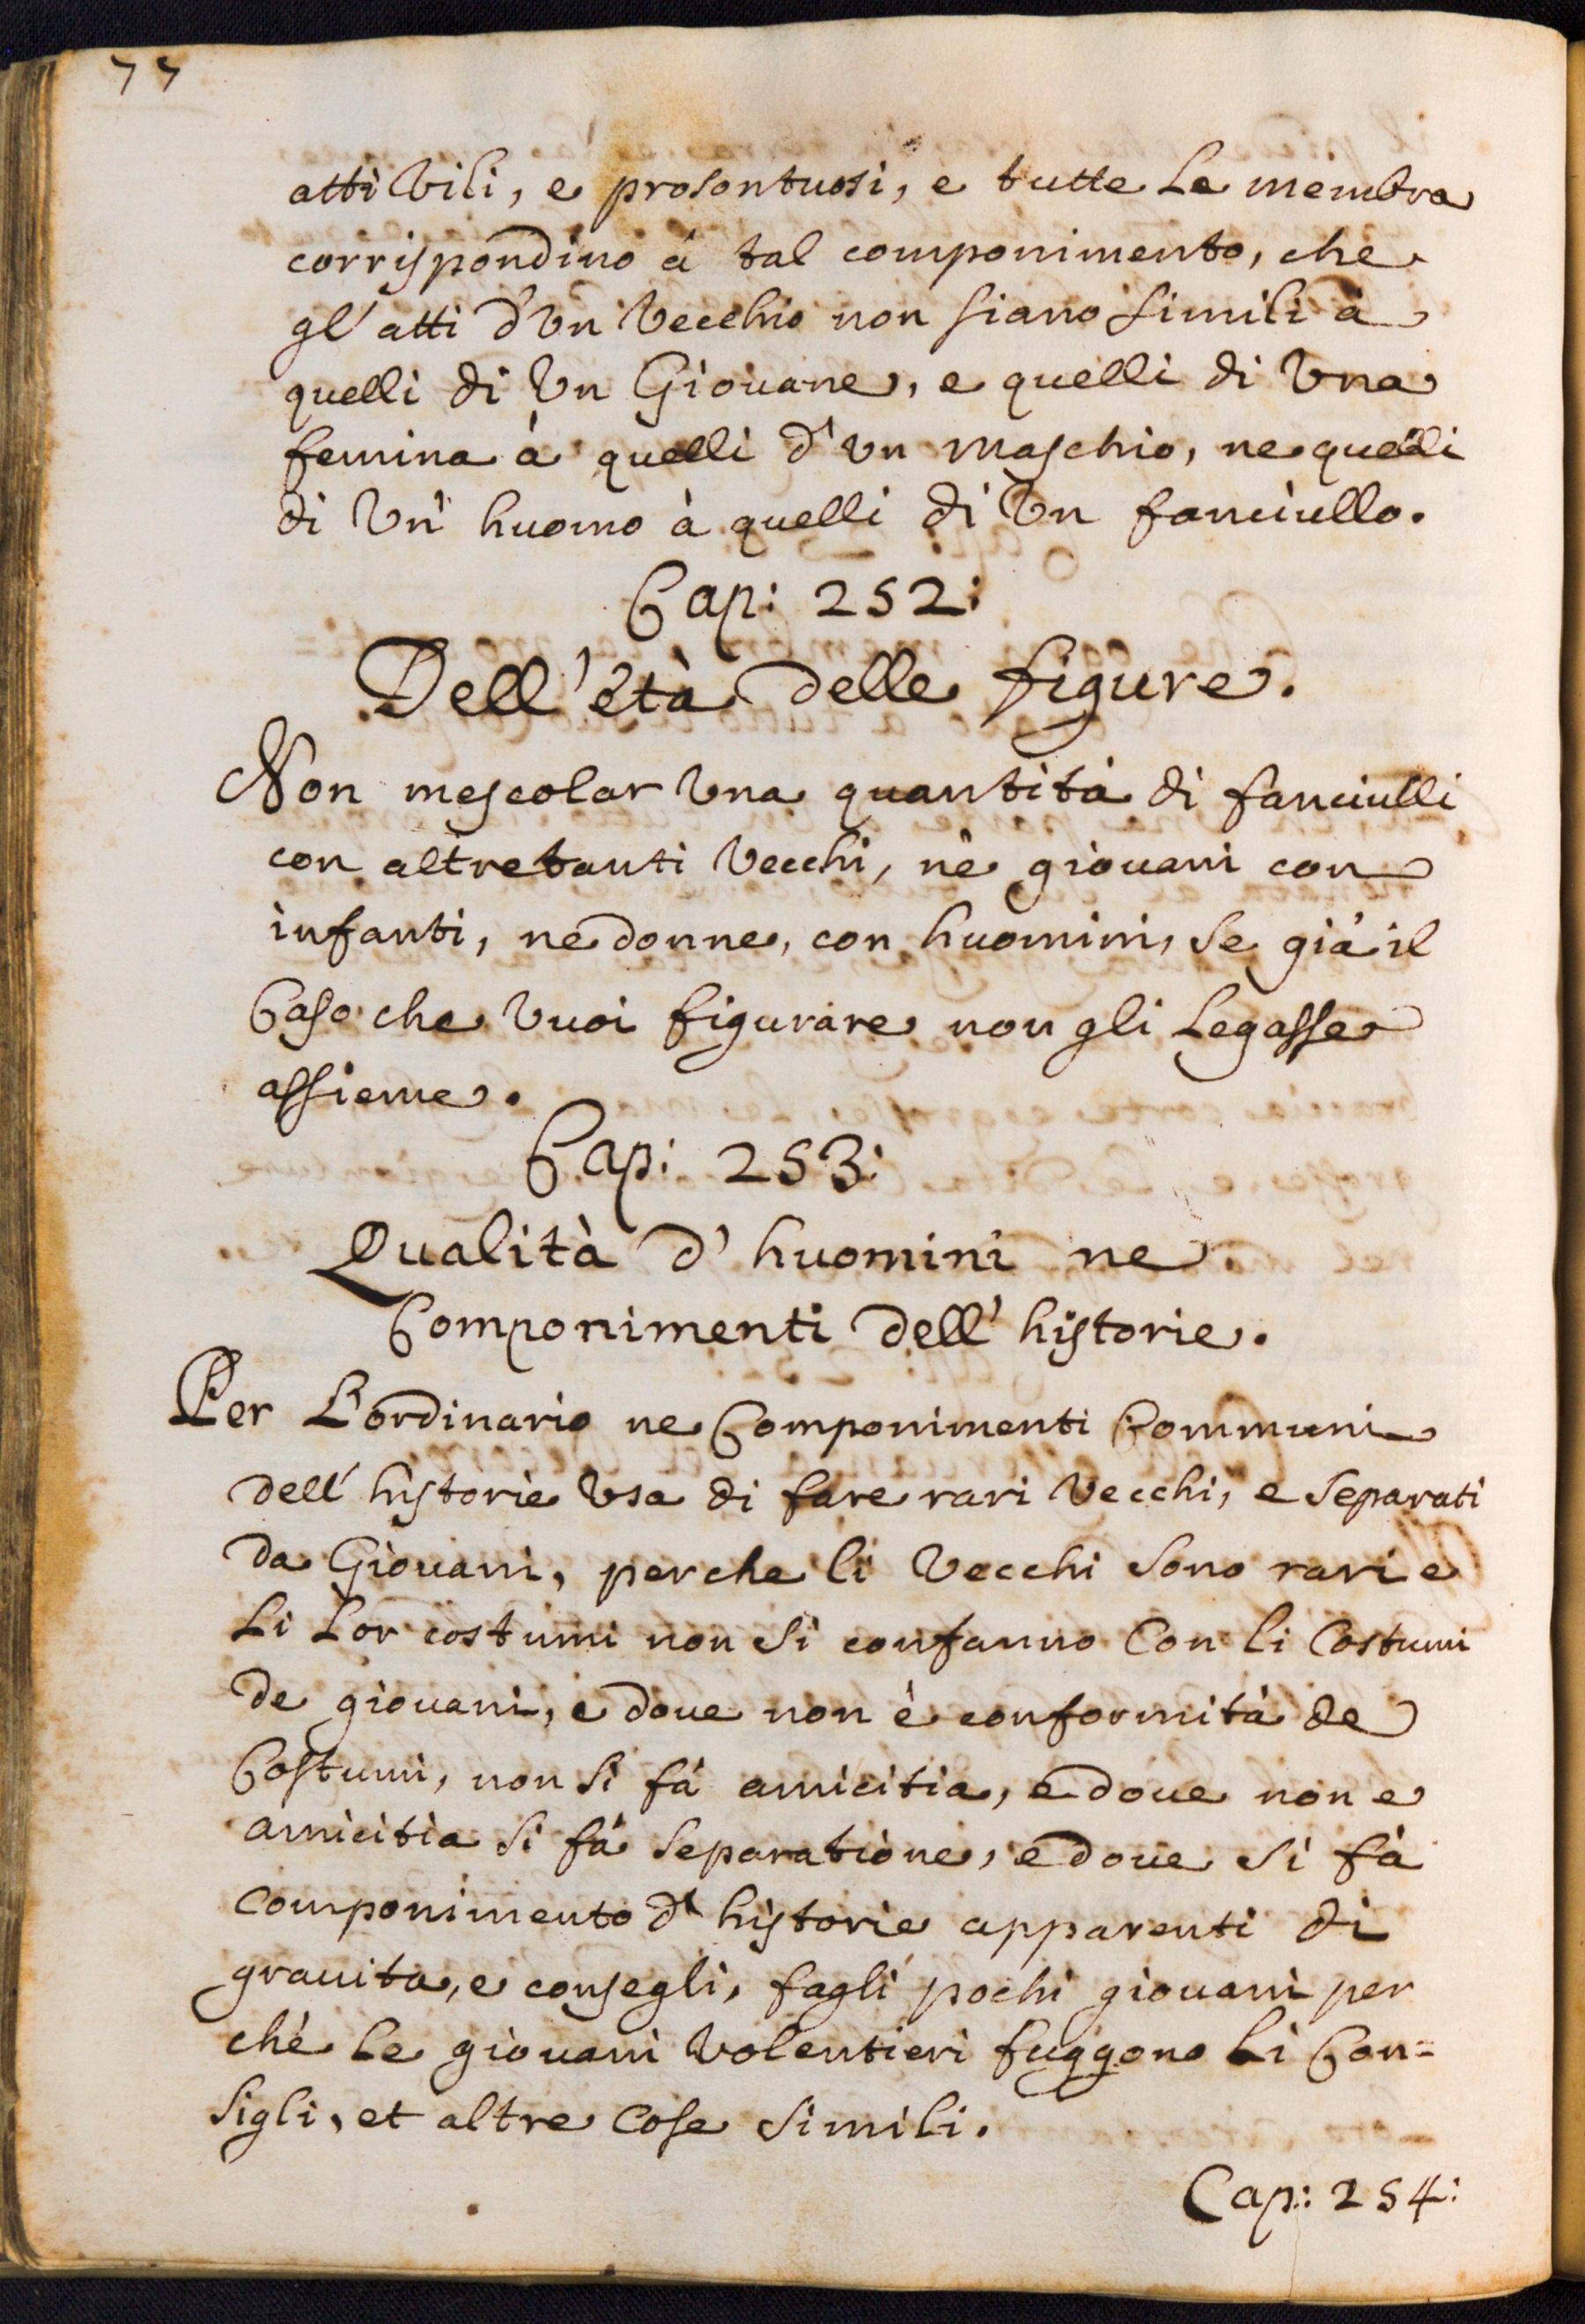 77
atti vili, e prosontuosi, e tutte le membra
corrispondino à tal componimento, che
gl'atti d'Vn Vecchio non siano simili à
quelli di Vn Giouane, e quelli di Vna
femina à quelli d'Vn maschio, ne quelli
di Vn huomo à quelli di Vn fanciullo.
Cap: 252:
Dell'età delle figure.
Non mescolar Vna quantità di fanciulli
con altretanti Vecchi, nè giouani con
infanti, ne donne, con huomini, se già il
Caso che Vuoi figurare non gli legasse
assieme.
Cap: 253:
Qualità d'huomini ne
Componimenti dell'historie.
Per L'ordinario ne Componimenti Communi
dell'historie Vsa di fare rari Vecchi, e separati
da Giouani, perche li Vecchi sono rari e
li lor costumi non si confanno con li costumi
de giouani, e doue non è conformità de
Costumi, non si fà amicitia, e doue non e
amicitia si fà separatione, e doue si fà
componimento d'historie apparenti di
grauita, e consegli, fagli pochi giouani per
chè le giouani Volentieri fuggono li Con=
sigli, et altre cose simili.
Cap: 254: